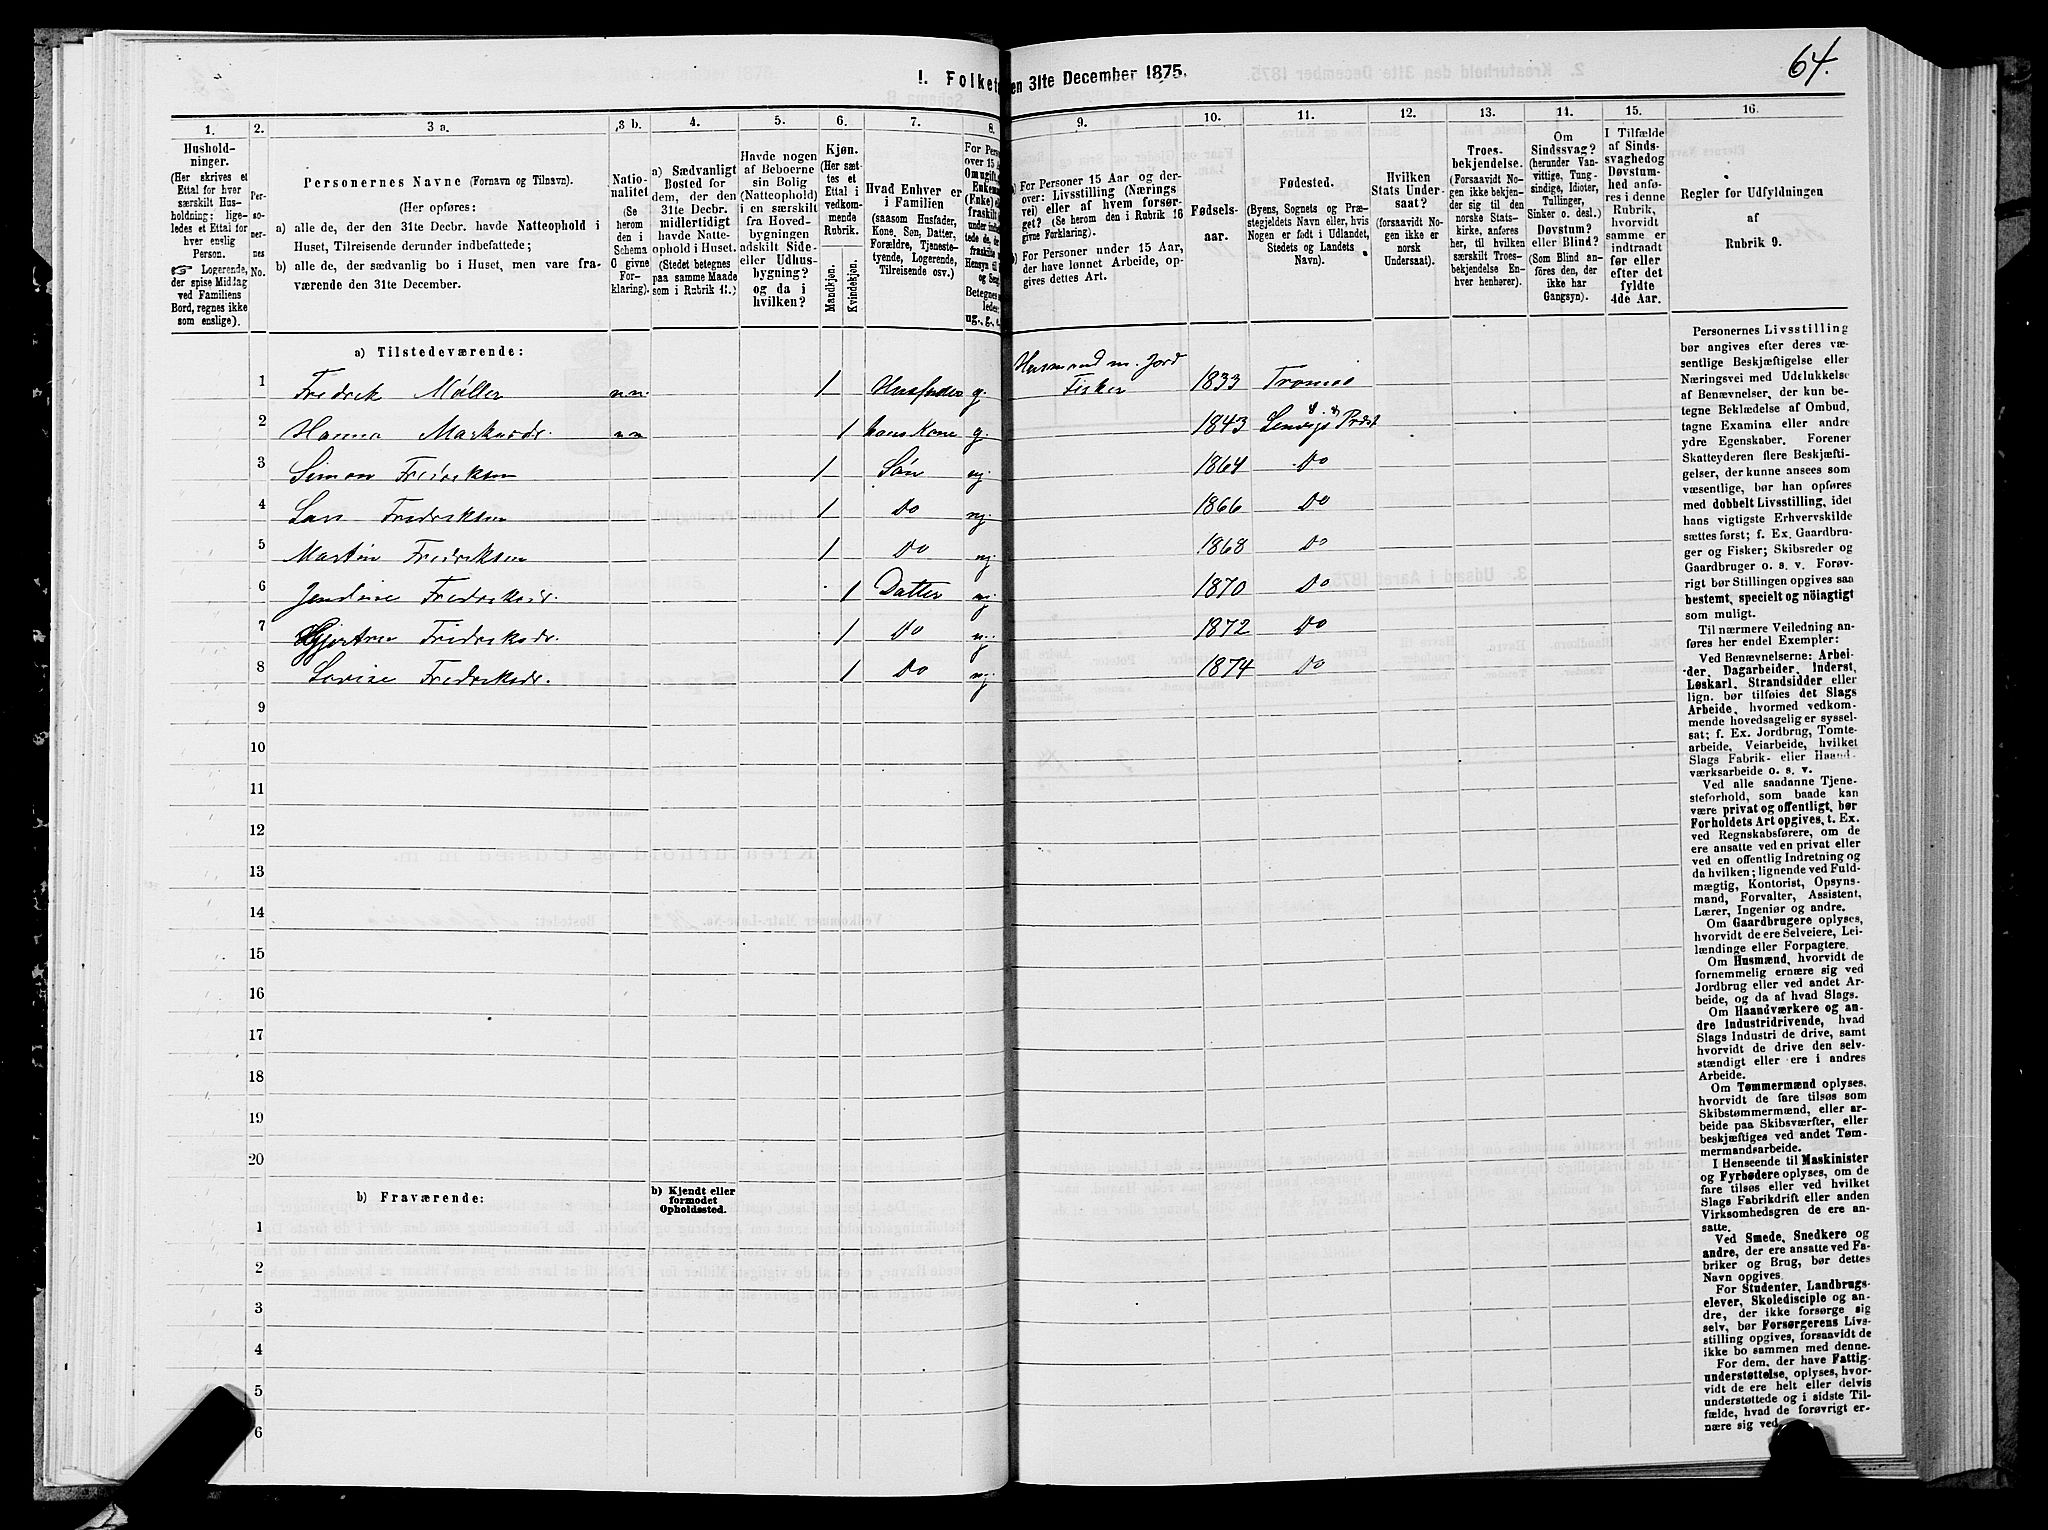 64.
I. Folket en 31te December 1875.
1. 2. 3 a. 3 b. 4. 5. 6. 7. 8. 9. 10. 11. 12. 13. 14. 15. 16.
Hushold-
ninger.
(Her skrives et
Ettal for hver
særskilt Hus-
holdning; lige-
ledes et Ettal for
hver enslig
Person.
☞ Logerende,
der spise Middag
ved Familiens
Bord, regnes ikke
som enslige).
Per-
so-
ner-
nes
No.
Personernes Navne (Fornavn og Tilnavn).
(Her opføres:
a) alle de, der den 31te Decbr. havde Natteophold i
Huset, Tilreisende derunder indbefattede;
b) alle de, der sædvanlig bo i Huset, men vare fra-
værende den 31te December.
Natio-
nalitet
(Se
herom
den i
Schema
G givne
For-
klaring).
a) Sædvanligt
Bosted for
dem, der den
31te Decbr.
midlertidigt
havde Natte-
ophold i Huset.
(Stedet betegnes
paa samme Maade
som i Rubrik 11.)
Havde nogen
af Beboerne
sin Bolig
(Natteophold)
i en særskilt
fra Hoved-
bygningen
adskilt Side-
eller Udhus-
bygning?
og da i
hvilken?
Kjøn.
(Her sæt-
tes et
Ettal i
vedkom-
mende
Rubrik.
Mandkjøn.
Kvindekjøn.
Hvad Enhver er
i Familien
(saasom Husfader,
Kone, Søn, Datter,
Forældre, Tjeneste-
tyende, Logerende,
Tilreisende osv.)
For Perso
over 15 Aa
Omugift,
Enkema
(Enke) el
fraskilt
ug., g., e.
For Personer 15 Aar og der-
over: Livsstilling (Nærings
vei) eller af hvem forsør-
get? (Se herom den i Rubrik 16
givne Forklaring).
b) For Personer under 15 Aar,
der have lønnet Arbeide, op-
gives dettes Art.
Fødsels-
aar.
Fødested.
(Byens, Sognets og Præ-
stegjeldets Navn eller, hvis
Nogen er født i Udlandet,
Stedets og Landets
Navn).
Hvilken
Stats Under-
saat?
(forsaavidt No-
gen ikke er
norsk
Undersaat).
Troes-
bekjendelse.
(Forsaavidt No-
gen ikke bekjen-
der sig til den
norske Stats-
kirke, anføres
her, til hvilken
særskilt Troes-
bekjendelse En-
hver henhører).
Om
Sindssvag?
(herunder Van-
vittige, Tung-
sindige, Idioter,
Tullinger,
Sinker o. desl.)
Døvstum?
eller Blind?
(Som Blind an-
føres den, der
ikke har
Gangsyn).
I Tilfælde
af Sinds-
svaghedog
Døvstum-
hed anfø-
res i denne
Rubrik,
hvorvidt
samme er
indtraadt
før eller
efter det
fyldte
4de Aar.
Regler for Udfyldningen
af
Rubrik 9.
a) Tilstedeværende:
1 Fredrik Møller n.n. 1 Husfader g. Husmand m. Jord Fisker 1833 Tromsø
2 Hanna Markusdr. nn 1 hans Kone g. 1843 Lenvigs Præst
3 Simon Fredriksen 1 Søn ug. 1864 Do
4 Lars Fredriksen 1 Do ug. 1866 Do
5 Martin Fredriksen 1 Do ug. 1868 Do
6 Fredriksdr. 1 Datter ug. 1870 Do
7 Fredriksdr. 1 Do ug. 1872 Do
8 Lovise Fredriksdr. 1 Do ug. 1874 Do
9
10
11
12
13
14
15
16
17
18
19
20
b) Fraværende:
b) Kjendt eller
formodet
Opholdssted.
1
2
3
4
5
6
Personernes Livsstilling
bør angives efter deres væ-
sentlige Beskjæftigelse eller
Næringsvei med Udelukkelse
af Benævnelser, der kun be-
tegne Beklædelse af Ombud,
tagne Examina eller andre
ydre Egenskaber. Forener
Skatteyderen flere Beskjæfti-
gelser, der kunne ansees som
væsentlige, bør han opføres
med dobbelt Livsstilling, idet
hans vigtigste Erhvervskilde
sættes først; f. Ex. Gaardbru-
ger og Fisker; Skibsreder og
Gaardbruger o. s. v. Forøv-
rigt bør Stillingen opgives saa
bestemt, specielt og nöiagtigt
som muligt.
Til nærmere Veiledning an-
føres her endel Exempler:
Ved Benævnelserne: Arbei-
der, Dagarbeider, Inderst,
Løskarl, Strandsidder eller
lign. bør tilføies det Slags
Arbeide, hvormed vedkom-
mende hovedsagelig er syssel-
sat; f. Ex. Jordbrug, Tomte-
arbeide, Veiarbeide, hvilket
Slags Fabrik- eller Haand-
værksarbeide o. s. v.
Ved alle saadanne Tjene-
steforhold, som baade kan
være privat og offentligt, bør
Forholdets Art opgives, t. Ex.
ved Regnskabsførere, om de
ere ansatte ved en privat eller
ved en offentlig Indretning og
da hvilken; lignende ved Fuld-
mægtig, Kontorist, Opsyns-
mand, Forvalter, Assistent,
Lærer, Ingeniør og andre.
Om Gaardbrugere oplyses,
hvorvidt de ere Selveiere, Lei-
lændinge eller Forpagtere.
Om Husmænd, hvorvidt de
fornemmelig ernære sig ved
Jordbrug eller ved andet Ar-
beide, og da af hvad Slags.
Om Haandværkere og an-
dre Industridrivende, hvad
Slags Industri de drive, samt
hvorvidt de drive den selv-
stændigt eller ere i andres
Arbeide.
Om Tømmermænd oplyses,
hvorvidt de fare tilsøs som
Skibstømmermænd, eller ar-
beide paa Skibsværfter, eller
beskjæftiges ved andet Tøm-
mermandsarbeide.
I Henseende til Maskinister
og Fyrbødere oplyses, om de
fare tilsøs eller ved hvilket
Slags Fabrikdrift eller anden
Virksomhedsgren de ere an-
satte.
Ved Smede, Snedkere og
andre, der ere ansatte ved Fa-
briker og Brug, bør dettes
Navn opgives.
For Studenter, Landbrugs-
elever, Skoledisciple og an-
dre, der ikke forsørge sig
selv, bør Forsørgerens Livs-
stilling opgives, forsaavidt de
ikke bo sammen med denne.
For dem, der have Fattig-
understøttelse, oplyses, hvor-
vidt de ere helt eller delvis
understøttede og i sidste Til-
fælde, hvad de forøvrigt er-
nære sig ved.